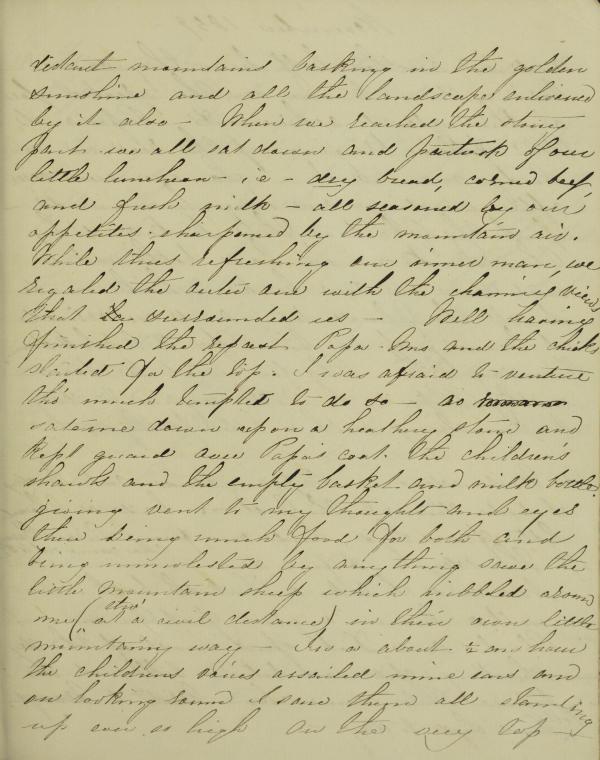 mountains basking in the golden
sunshine and all the landscape enlivened
by it also – When we reached the stony
part we all sat down and partook of our
little luncheon – i e – dry bread, corned beef,
and fresh milk – all seasoned by our
appetites sharpened by the mountain air.
While thus refreshing our inner man, we
regaled the outer one with the charming views
that surrounded us – Well having
finished the repast Papa and the chicks
started for the top. I was afraid to venture
tho' much tempted to do so – so
sat me down upon a heathery stone and
kept guard over Papa's coat, the children's
shawls and the empty basket and milk bottle.
giving vent to my thoughts and eyes
there being much food for both and
being unmolested by anything save the
little mountain sheep which nibbled around
me (tho' at a civil distance) in their own little
mountainy way – In a about ½ an hour
the childrens voices assailed mine ears and
on looking round I saw them all standing
up ever so high on the very top –